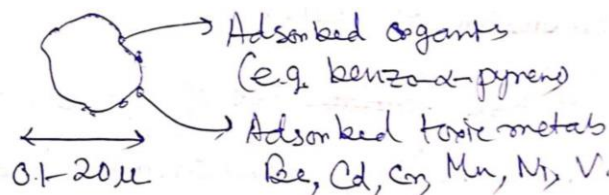 Adsorbed organts
(e.g. benzo-α-pyrene)
Adsorbed toxic metals
0.1-20μ
Be, Cd, Cr, Mn, Ni, V.